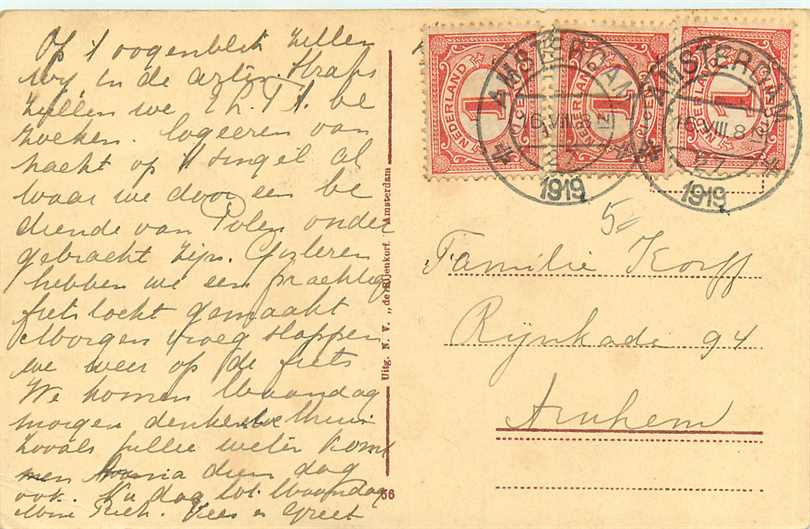 Op 't oogenblik zitten
wij in de artis. Straks
zullen we be
zoeken. Logeeren van
nacht op 't singel al
waar we door een be
diende van Polen onder
gebracht zijn. Gisteren
hebben we een prachtig
fietstocht gemaakt
Morgen vroeg stappen
we weer op de fiets
We komen Maandag
morgen denkelijk thuis
zooals jullie weten komt
dien dag
ook. Nu dag tot Maandag
Greet
Uitg. N. V. „de Bijenkorf, Amsterdam
36
NEDERLAND 1 CENT
NEDERLAND 1 CENT
NEDERLAND 1 CENT
AMSTERDAM
1919
AMSTERDAM
1919
5
Familie Korff
Rijnkade 94
Arnhem